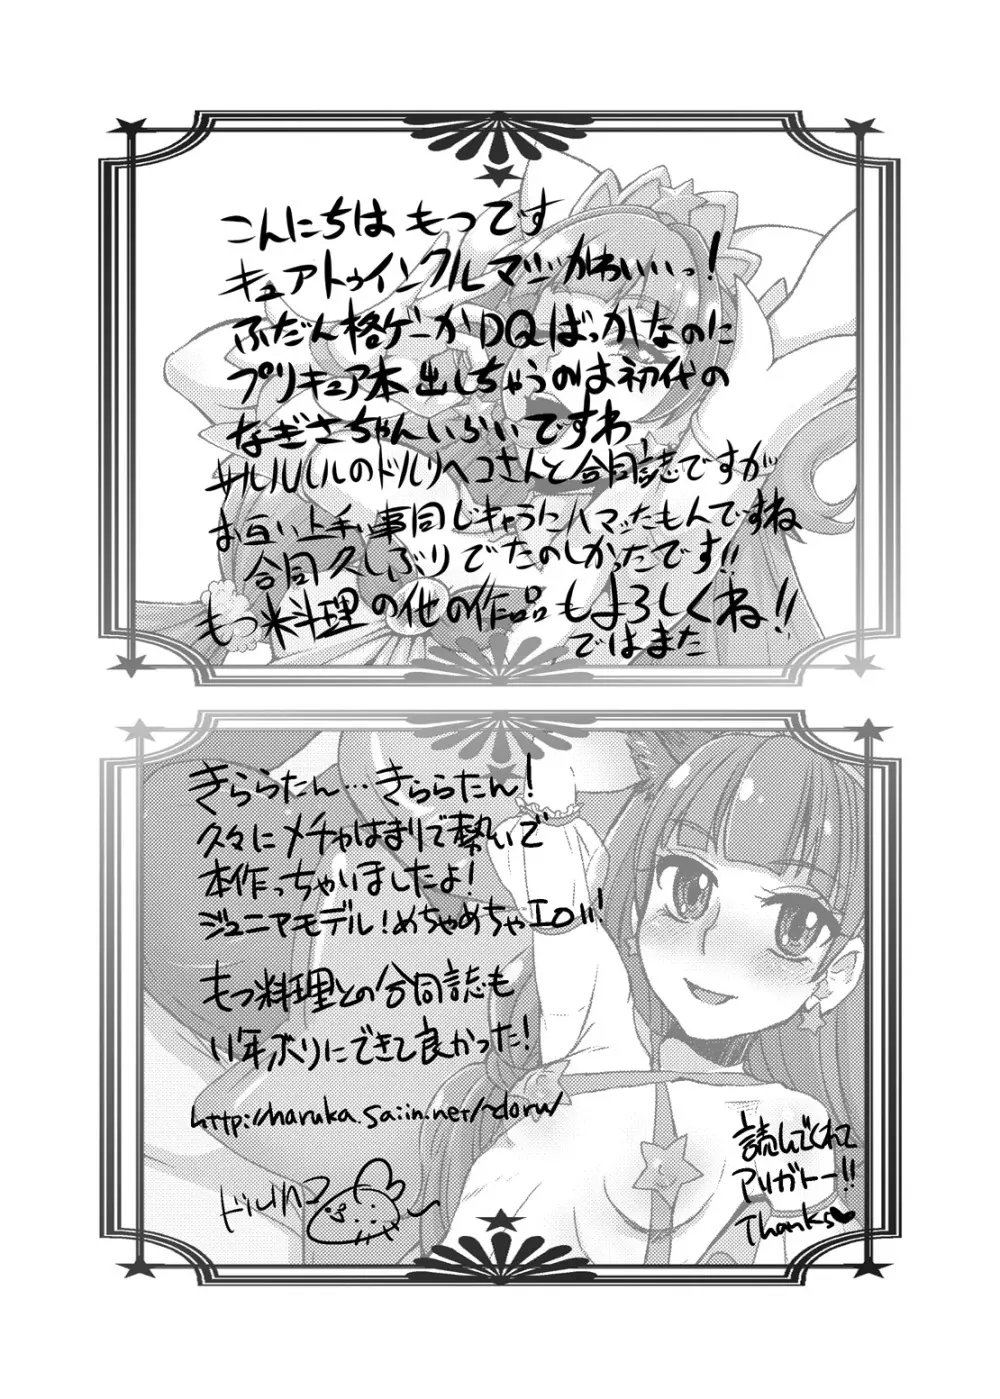 こんにちは もつです
キュアトゥインクルマジかわいいっ!
ふだん格ゲーかDQばっかなのに
プリキュア本出しちゃうのは初代の
なぎさちゃんいらいですわ
サルルルルのドルリヘコさんと合同誌ですが
お互い上手い事同じキャラにハマったもんですね
合同久しぶりでたのしかったです!!
もつ料理の他の作品もよろしくね!!
ではまた
きららたん…きららたん!
久々にメチャはまりで勢いで
本作っちゃいましたよ!
ジュニアモデル!めちゃめちゃエロい!
もつ料理との合同誌も
11年ぶりにできて良かった!
http://haruka.saiin.net/~doru/
ドルリヘコ
読んでくれて
アリガトー!!
Thanks♥